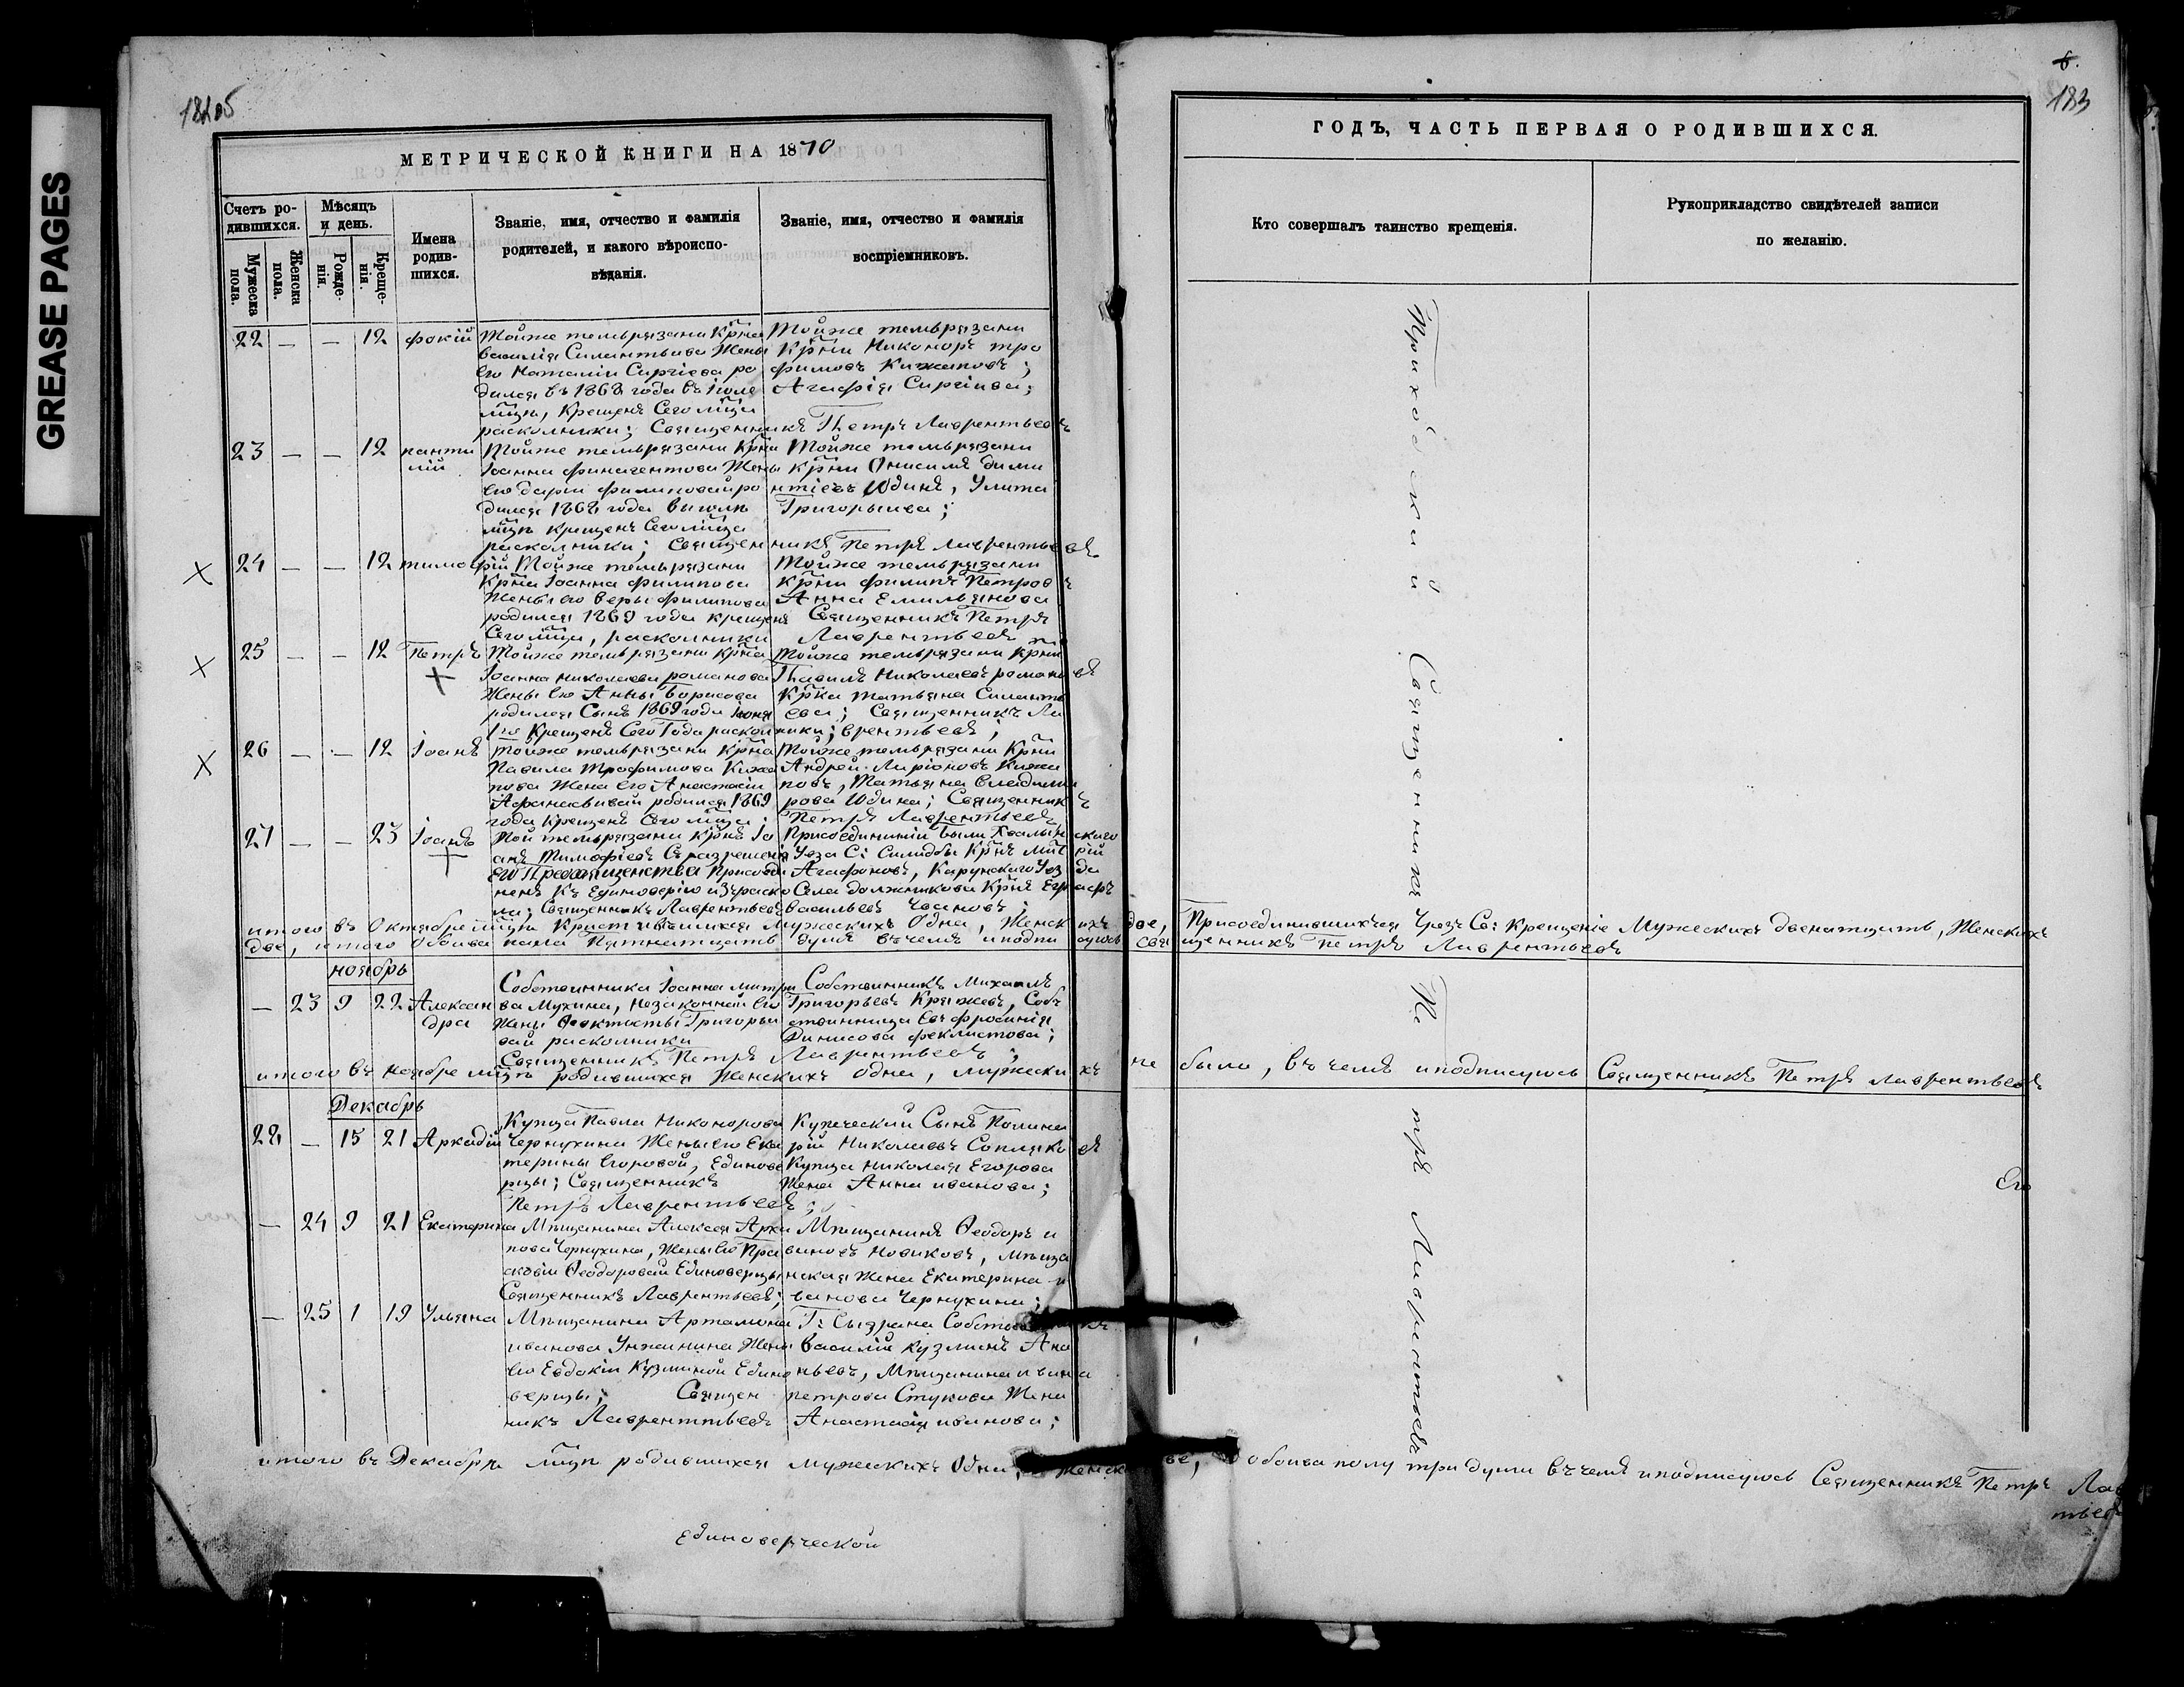 GREASE PAGES
6.
183
МЕТРИЧЕСКОЙ КНИГИ НА 1870
ГОДЪ, ЧАСТЬ ПЕРВАЯ О РОДИВШИХСЯ.
Счетъ ро-
дившихся.
Мужеска
пола.
Женска
пола.
Мѣсяцъ
и день.
Рожде-
нія.
Креще-
нія.
Имена
родив-
шихся.
Званіе, имя, отчество и фамилія
родителей, и какого вѣроиспо-
вѣданія.
Званіе, имя, отчество и фамилія
воспріемниковъ.
Кто совершалъ таинство крещенія.
Рукоприкладство свидѣтелей записи
по желанію.
22 — — 12 фокій
Тойже темьрязани Крйна
василія Силантьива Жены
его Наталіи Сиргіева ро
дился въ 1868 года въ Іюле
мйцъ, Крещенъ Сего мйца
расколники; Священникъ Петръ Лаврентьевъ
Тойже темьрязани
Крйни Никоноръ тро
фимовъ Кижаповъ;
Агафія Сиргіива;
23 — — 12 панти
лій
Тойже темьрязани Крйни
Іоанна финагентова Жены
его дарьи филиповай ро
дился 1868 года
мйцъ крещенъ Сего мйца
расколники; Священникъ Петръ Лаврентьевъ
Тойже темьрязани
крйни Онисимъ дими
нтіевъ Юдинъ, Улита
Григорьива;
24 — — 12 тимофій
Тойже темьрязани
Крйна Іоанна филипова
Жены его Веры филипова
родился 1869 года крещенъ
Сего мйца, расколники
Тойже темьрязани
Крйни филипъ Петровъ
Анна Емильянова
Священникъ Петръ
Лаврентьевъ
25 — — 12 Петръ
Тойже темьрязани крйна
Іоанна николаева романова
Жены его Анны Борисова
родился Сынъ 1869 года Іюня
1го Крещенъ Сего Года расколники;
Тойже темьрязани крйни
Павилъ Николаевъ романовъ
Крйка татьяна Силанть
ева; Священникъ Ла
врентьевъ;
26 — — 12 Іоанъ
Тойже темьрязани крйна
Павила Трофимова Кижа
пова Жена его Анастасіи
Афанасьивай родился 1869
года Крещенъ Сего мйца;
Тойже темьрязани Крйни
Андрей Ларіоновъ Кижа
повъ, Татьяна Владими
рова Юдина; Священникъ
Петръ Лаврентьевъ
27 — — 23 Іоанъ
Той темьрязани крйнъ Іо
анъ Тимофіевъ Съ разрешенія
Его Преосвященства Присоеди
ненъ Къ Единоверію изъ раско
ла; Священникъ Лаврентьевъ
Присоедининіи были Хвалынскаго
Уеза С: Селидбы Крйнъ
Агафоновъ, Карунскаго Уезда
Села должникова Крйнъ Евграфъ
васильевъ Чвановъ;
итого въ Октябре мйцъ Мужескихъ Одна, Женскихъ две, Присоединившихся Чрезъ Св: Крещеніе Мужескихъ двенатцать, Женскихъ
две, итого Обоива пала Пятнатцать душъ въ чемъ и подписуюсь Священникъ Петръ Лаврентьевъ
ноябрь
— 23 9 22 Алексан
дра
Собственника Іоанна митри
ва Мухина, Незаконнай его
Жены Феоктисты Григорьи
вай расколники
Священникъ Петръ Лаврентьевъ;
Собственникъ Михаилъ
Григорьевъ Кряжевъ, Соб
ственница Евфросинія
Динисова феклистова;
итого въ ноябре мйцъ родившихся Женскихъ одна, мужескихъ не было, въ чемъ и подписуюсь Священникъ Петръ Лаврентьевъ
Декабрь
22 — 15 21 Аркадій
Купца Павла Никонорова
Чернухина Жены его Ека
терины Егоровой, Единове
рцы; Священникъ
Петръ Лаврентьевъ;
Купеческий Сынъ Полика
рпій Николаевъ Сопляковъ
Купца Николая Егорова
Жена Анна иванова;
— 24 9 21 Екатерина
Мещанина Алексея Архи
пова Чернухина, Жены его Пра
сковіи Феодоровай Единоверцы
Священникъ Лаврентьевъ;
Мещанинъ Феодоръ и
вановъ Новиковъ, Меща
нская Жена Екатерина и
ванова Чернухина;
— 25 1 19 Ульяна
Мещанина Артамона
иванова Унжанина Жены
его Евдокіи Кузминой Едино
верцы; Священ
никъ Лаврентьевъ
Г: Сызрана
василій Кузминъ Ана
ньевъ, Мещанина ивана
петрова Стукова Жена
Анастасія иванова;
итого въ Декабре мйцъ родившихся мужескихъ Одна, Женскихъ две, обоива полу три души въ чемъ и подписуюсь Священникъ Петръ Лаврен
тьевъ
Приходский Священникъ Петръ Лаврентьевъ
Его
Единоверческой